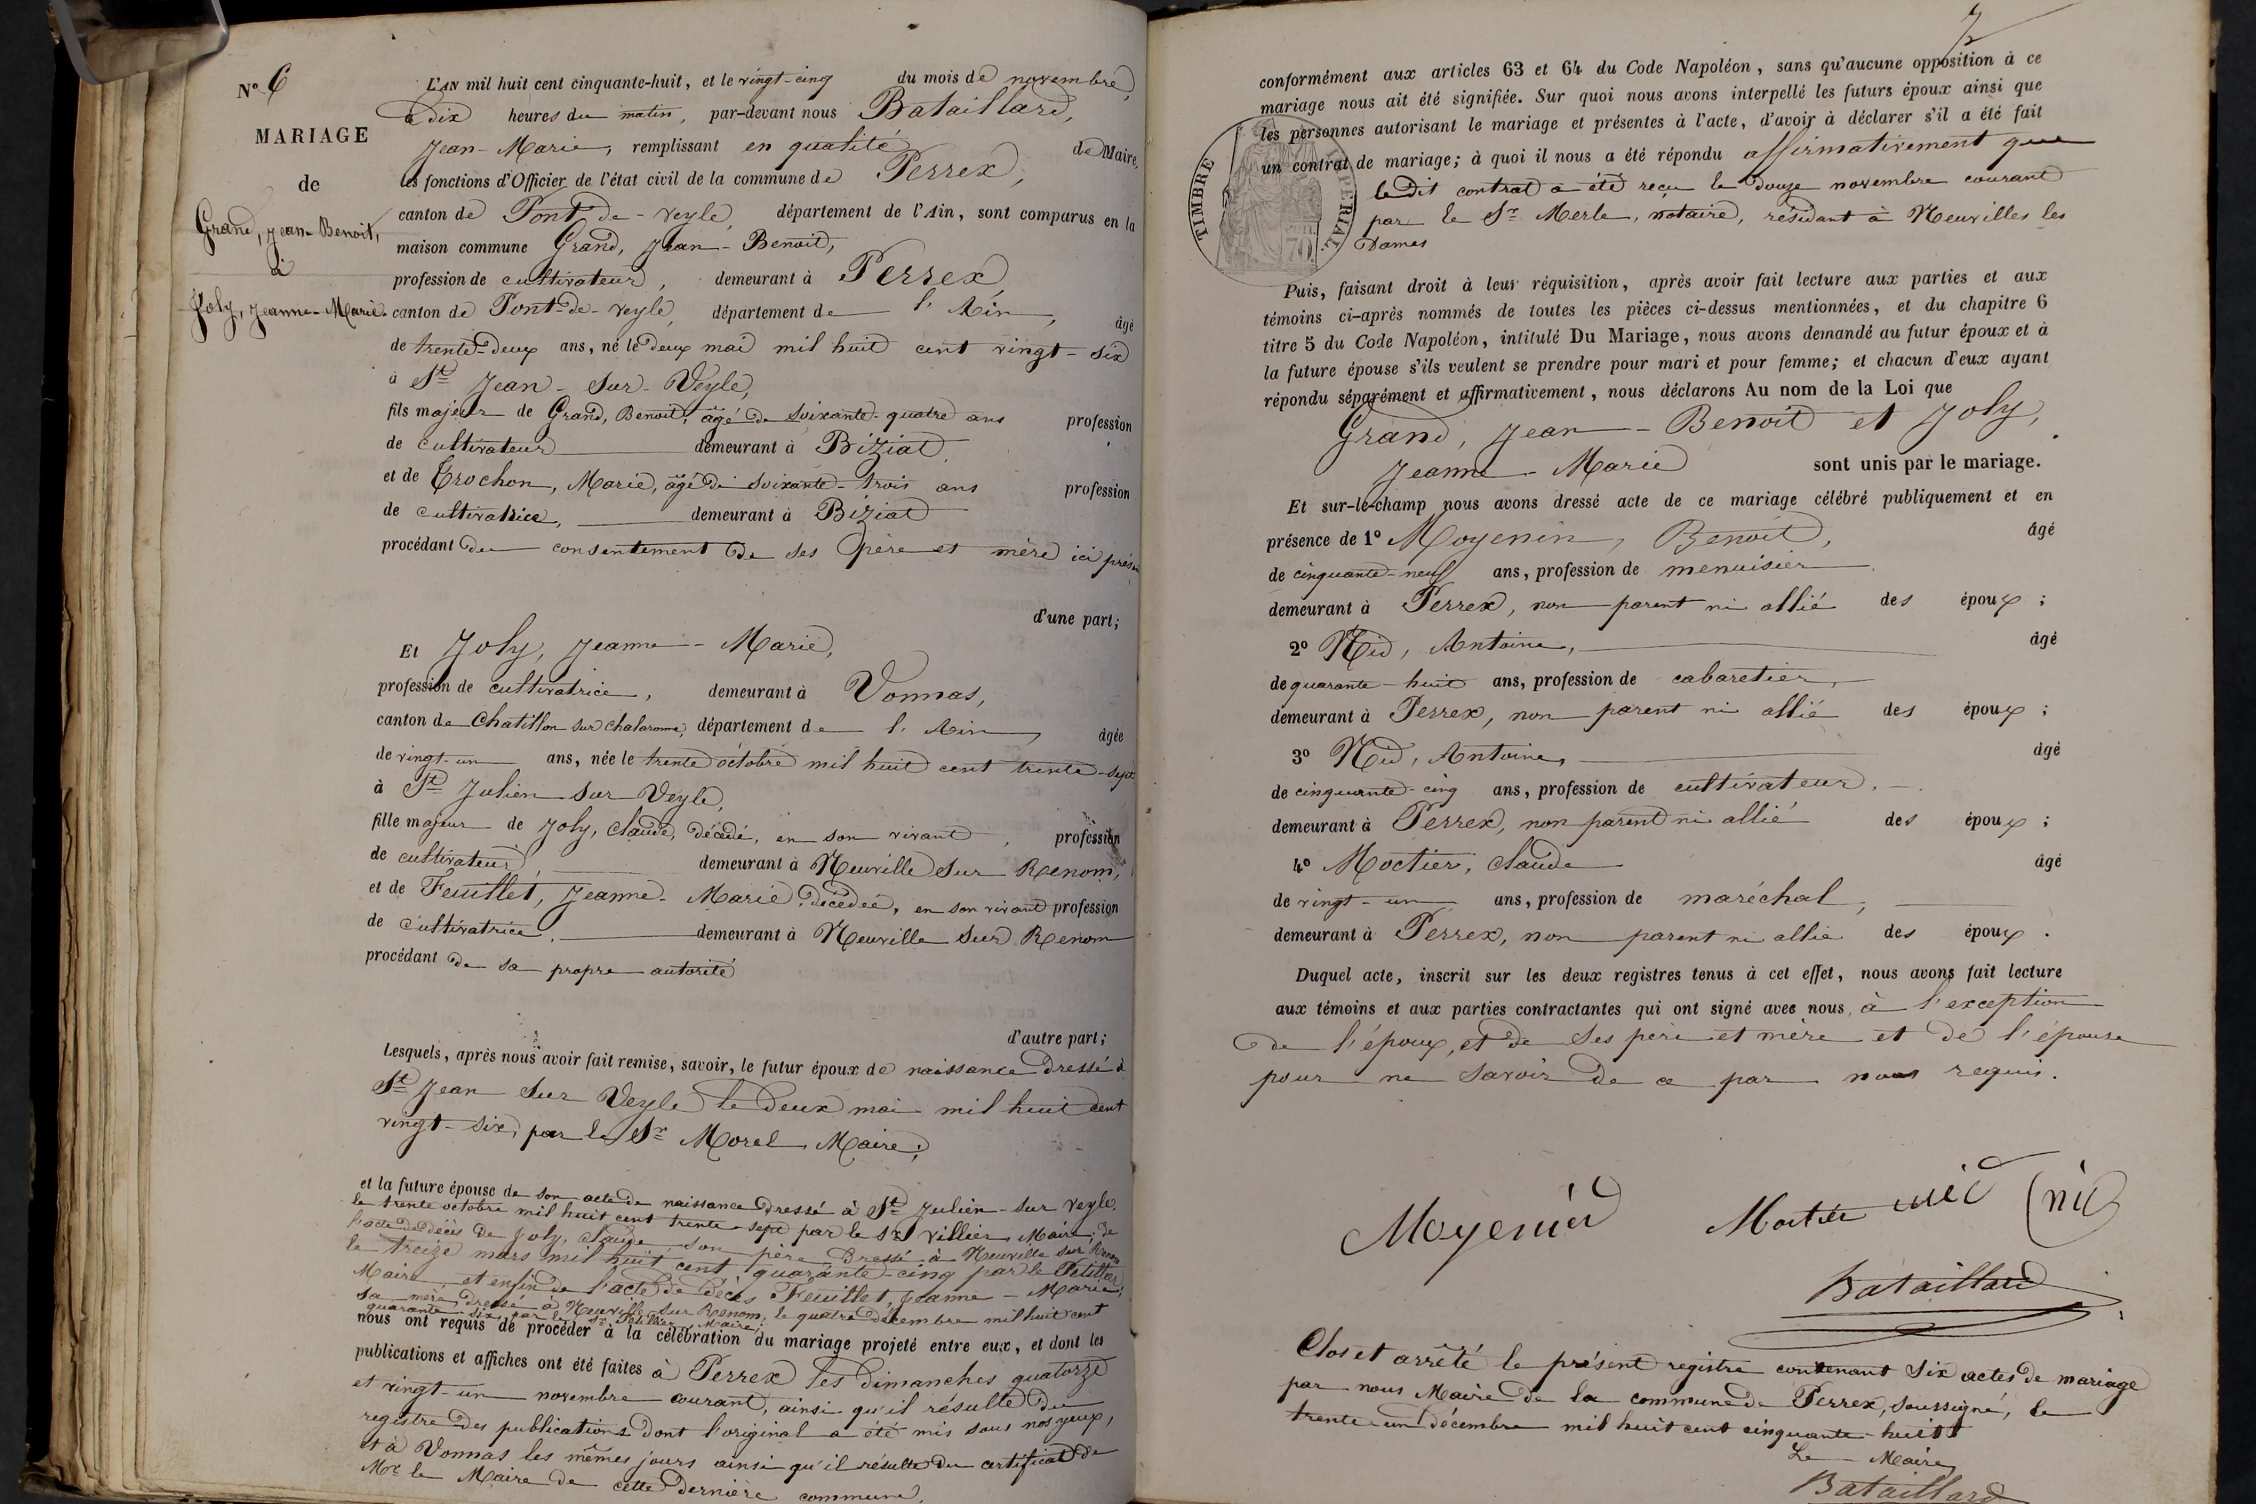 N° 6
MARIAGE
de
Grand, Jean-Benoit,
à
Joly, Jeanne-Marie.
L'AN mil huit cent cinquante-huit, et le vingt-cinq du mois de novembre,
à dix heures du matin, par-devant nous Bataillard,
Jean-Marie, remplissant en qualité de Maire,
les fonctions d'Officier de l'état civil de la commune de Perrex,
canton de Pont-de-veyle, département de l'Ain, sont comparus en la
maison commune Grand, Jean-Benoit,
profession de cultivateur, demeurant à Perrex
canton de Pont-de-veyle, département de l'Ain, âgé
de trente-deux ans, né le deux mai mil huit cent vingt-six
à St Jean-sur-Veyle,
fils majeur de Grand, Benoit, âgé de soixante-quatre ans profession
de cultivateur demeurant à Biziat
et de Trochon, Marie, âgé de soixante-trois ans profession
de cultivatrice, demeurant à Biziat
procédant du consentement de ses père et mère ici
d'une part;
Et Joly, Jeanne-Marie,
profession de cultivatrice, demeurant à Vonnas,
canton de Chatillon sur chalaronne, département de l'Ain, âgée
de vingt-un ans, née le trente octobre mil huit cent trente-sept
à St Julien sur Veyle,
fille majeur de Joly, Claude, décédé, en son vivant, profession
de cultivateur, demeurant à Neuville sur Renom,
et de Feuillet, Jeanne-Marie, décédée, en son vivant profession
de cultivatrice, demeurant à Neuville sur Renom
procédant de sa propre autorité
d'autre part;
Lesquels, après nous avoir fait remise, savoir, le futur époux de naissance dressé à
St Jean sur Veyle le deux mai mil huit cent
vingt-six, par le Sr Morel, Maire,
et la future épouse de son acte de naissance dressé à St Julien-sur Veyle,
le trente octobre mil huit cent trente-sept par le Sr Villier, Maire; de
l'acte de décès de Joly, Claude, son père dressé à Neuville sur Renom
le treize mars mil huit cent quarante-cinq par le
Maire, et enfin de l'acte de décès Feuillet, Jeanne-Marie,
sa mère, dressé à Neuville sur Renom, le quatre décembre mil huit cent
quarante-six par le Sr Maire;
nous ont requis de procéder à la célébration du mariage projeté entre eux, et dont les
publications et affiches ont été faites à Perrex les dimanches quatorze
et vingt-un novembre courant, ainsi qu'il résulte du
registre des publications dont l'original a été mis sous nos yeux,
et à Vonnas les mêmes jours ainsi qu'il résulte du certificat de
Mr le Maire de cette dernière commune,
7
conformément aux articles 63 et 64 du Code Napoléon, sans qu'aucune opposition à ce
mariage nous ait été signifiée. Sur quoi nous avons interpellé les futurs époux ainsi que
les personnes autorisant le mariage et présentes à l'acte, d'avoir à déclarer s'il a été fait
un contrat de mariage; à quoi il nous a été répondu affirmativement que
le dit contrat a été reçu le douze novembre courant
par le Sr Merle, notaire, résidant à Neuvilles les
Dames
TIMBRE IMPÉRIAL
70
Puis, faisant droit à leur réquisition, après avoir fait lecture aux parties et aux
témoins ci-après nommés de toutes les pièces ci-dessus mentionnées, et du chapitre 6
titre 5 du Code Napoléon, intitulé Du Mariage, nous avons demandé au futur époux et à
la future épouse s'ils veulent se prendre pour mari et pour femme; et chacun d'eux ayant
répondu séparément et affirmativement, nous déclarons Au nom de la Loi que
Grand, Jean-Benoit et Joly,
Jeanne-Marie sont unis par le mariage.
Et sur-le-champ nous avons dressé acte de ce mariage célébré publiquement et en
présence de 1° Moyenin, Benoît, âgé
de cinquante-neuf ans, profession de menuisier
demeurant à Perrex, non parent ni allié des époux;
2° Nid, Antoine, âgé
de quarante-huit ans, profession de cabaretier,
demeurant à Perrex, non parent ni allié des époux;
3° Nid, Antoine, âgé
de cinquante-cinq ans, profession de cultivateur,
demeurant à Perrex, non parent ni allié des époux;
4° Moctier, Claude âgé
de vingt-un ans, profession de maréchal,
demeurant à Perrex, non parent ni allié des époux.
Duquel acte, inscrit sur les deux registres tenus à cet effet, nous avons fait lecture
aux témoins et aux parties contractantes qui ont signé avec nous, à l'exception
de l'époux, et de ses père et mère et de l'épouse
pour ne savoir de ce par nous requis.
Moyenin Moctier nid nid
Bataillard
Clos et arrêté le présent registre contenant six actes de mariage
par nous Maire de la commune de Perrex, soussigné, le
trente-un décembre mil huit cent cinquante-huit
Le Maire
Bataillard